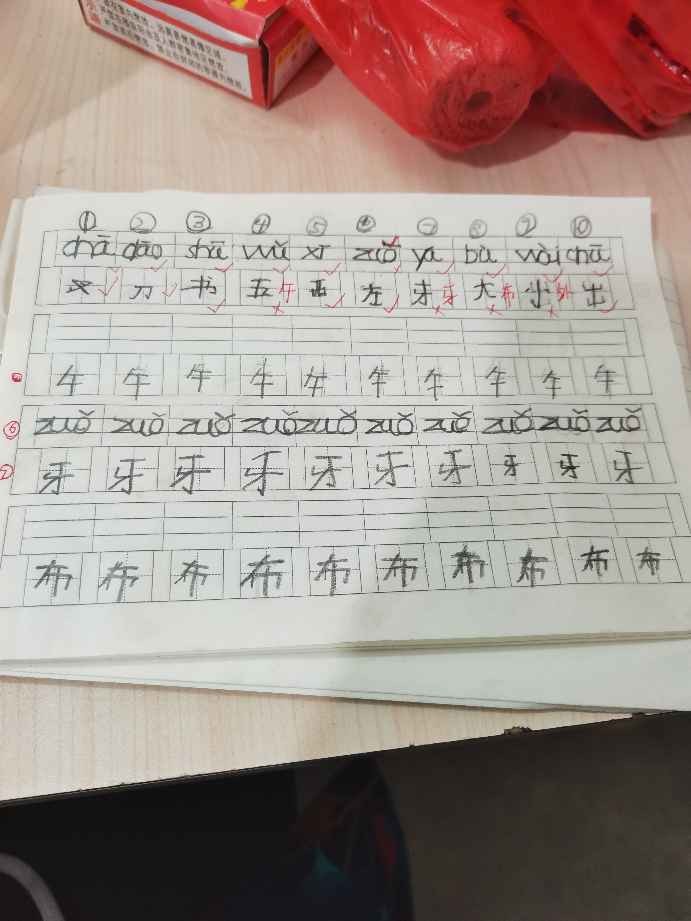 ① ② ③ ④ ⑤ ⑥ ⑦ ⑧ ⑨ ⑩
chā dāo shū wǔ xī zuǒ yá bù wài chū
叉 刀 书 五 午 西 左 牙 牙 大 布 外 出
午 午 午 午 午 午 午 午 午 午
⑥ zuǒ zuǒ zuǒ zuǒ zuǒ zuǒ zuǒ zuǒ zuǒ zuǒ
⑦ 牙 牙 牙 牙 牙 牙 牙 牙 牙 牙
布 布 布 布 布 布 布 布 布 布